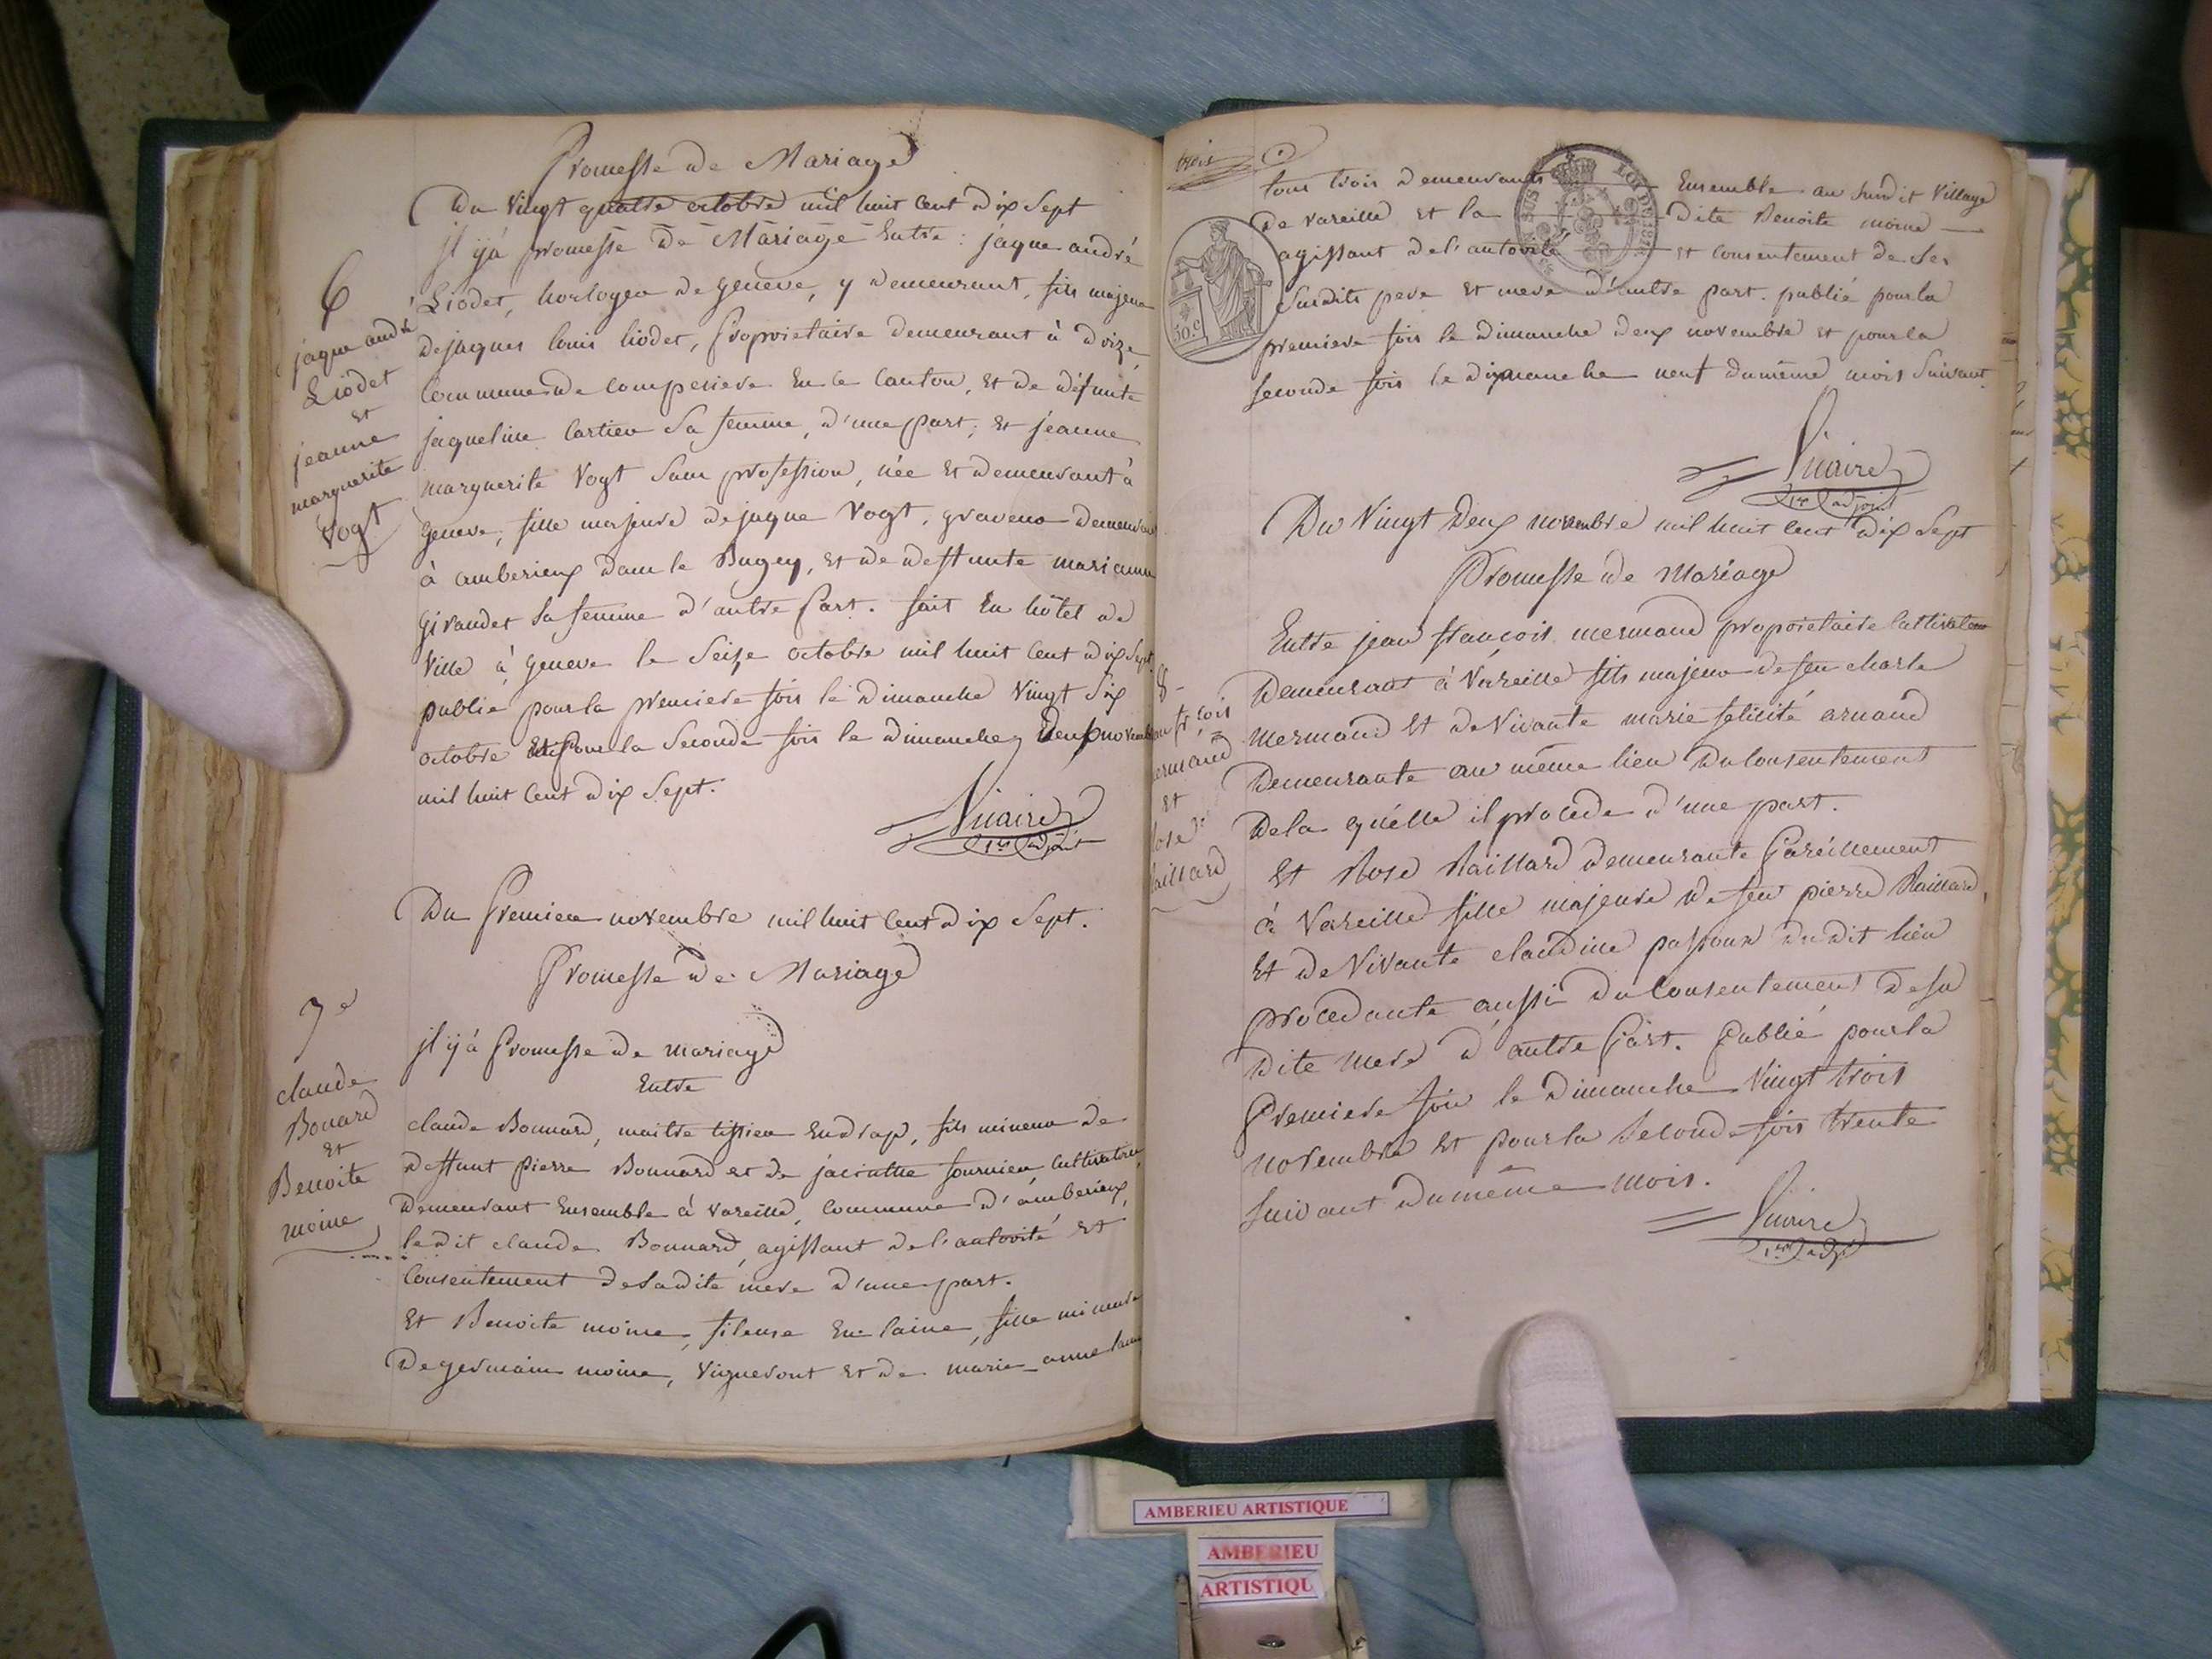 Promesse de Mariage
Du Vingt quatre octobre mil huit Cent dix Sept
jl ÿá promesse De Mariage Entre : jaque andré
Liodet, horloger de geneve, y demeurant, fils majeur
de jaques louis liodet, Proprietaire demeurant à
Commune de Compesiere En ce Canton, et de défunte
jaqueline Cartier Sa femme, d'une part; et jeanne
marguerite Vogt Sans profession, née et demeurant à
geneve, fille majeure de jaque Vogt, graveur demeurant
à amberieux dans le Bugey, et de deffunte marianne
giraudet Sa femme d'autre Part. fait En hôtel de
Ville à geneve le Seize octobre mil huit Cent dix Sept
publié pour la premiere fois le dimanche Vingt Six
octobre Et Pour la Seconde fois le dimanche Deux novembre
mil huit Cent dix Sept.
1er adjoint
6
jaque andré
Liodet
et
jeanne
marguerite
Vogt
Du Premier novembre mil huit Cent dix Sept.
Promesse de Mariage
7e
claude
Bonard
et
Benoite
moine
jl ÿ á Promesse de mariage
Entre
claude Bonnard, maitre tissier En drap, fils mineur de
deffunt pierre Bonnard et de jacinthe fournier, Cultivatrice
demeurant Ensemble à Vareille, Commune d'amberieux,
le dit claude Bonnard, agissant de l'autorité et
Consentement de sa dite mere d'une part.
Et Benoite moine, fileuse En laine, fille mineure
de germain moine, Vigneront et de marie anne
trois
tous trois demeurants Ensemble au Susdit Village
de Vareille et la dite Benoite moine
agissant de l'autorité et consentement de Ses
Susdits pere et mere d'autre part. publié pour la
premiere fois le dimanche deux novembre et pour la
Seconde fois le dimanche neuf du même mois Suivant.
50.c
1er adjoint
Du Vingt Deux novembre mil huit Cent dix Sept
Promesse de Mariage
8
fr.çois
mermand
et
Rose
Raillard
Entre jean françois mermand proprietaire Cultivateur
Demeurant à Vareille fils majeur de feu charle
Mermand et de Vivante marie felicité arnaud
Demeurante au même lieu du Consentement
De la quélle il procede d'une part.
Et Rose Raillard demeurante Paréillement
á Vareille fille majeure de feu pierre Raillard,
Et de Vivante claudine du dit lieu
procedante aussi du Consentement de sa
dite Mere d'autre Part. Publié pour la
Premiere fois le dimanche Vingt trois
novembre et pour la Seconde fois trente
Suivant du même mois.
AMBERIEU ARTISTIQUE
AMBERIEU
ARTISTIQU